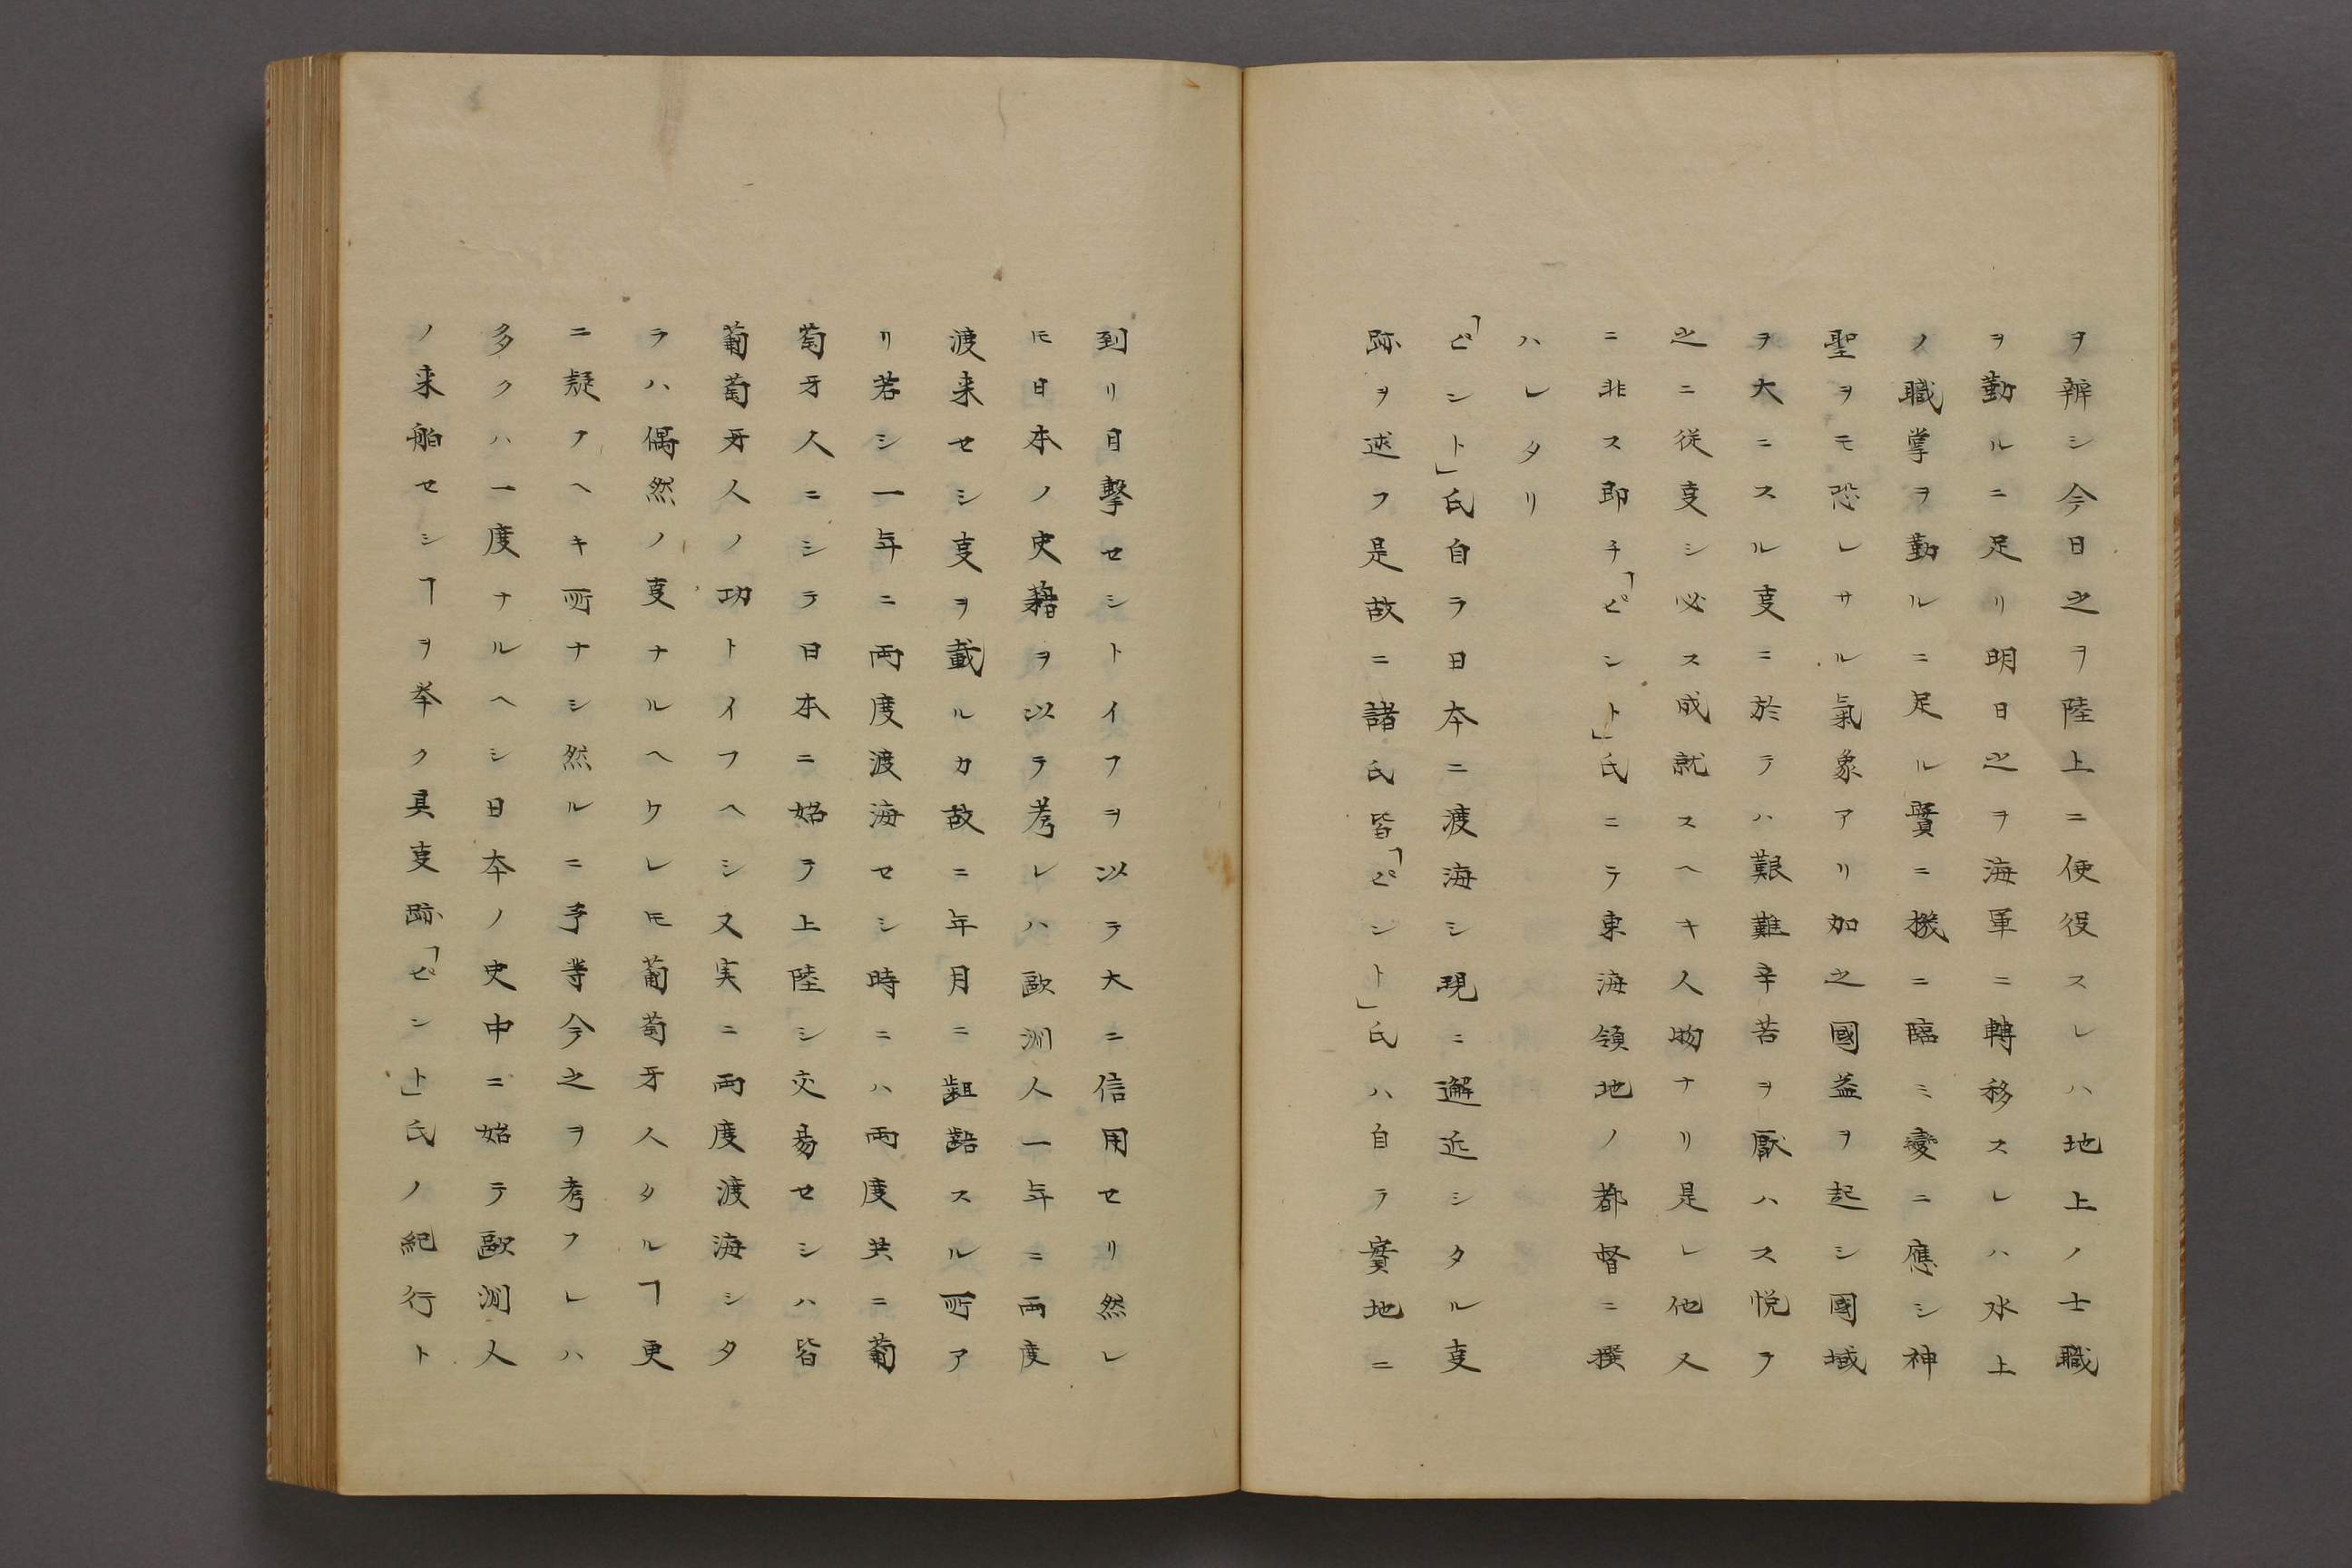 ヲ辨シ今日之ヲ陸上ニ使役スレハ地上ノ士職
ヲ勤ルニ足リ明日之ヲ海軍ニ轉移スレハ水上
ノ職掌ヲ勤ルニ足ル質ニ機ニ臨ミ變ニ應シ神
聖ヲモ恐レサル氣象アリ加之國益ヲ起シ國域
ヲ大ニスル叓ニ於テハ艱難辛苦ヲ厭ハス悦テ
之ニ従叓シ必ス成就スヘキ人物ナリ是レ他ス
ニ非ス即チ「ピシト」氏ニテ東海領地ノ都督ニ撰
ハレタリ
「ピシト」氏自ラ日本ニ渡海シ現ニ邂近シタル叓
跡ヲ述フ是故ニ諸氏皆「ピシト」氏ハ自ラ實地ニ
到リ目擊セシトイフヲ以テ大ニ信用セリ然レ
𪜈日本ノ史籍ヲ以テ考レハ歐洲人一年ニ両度
渡来セシ叓ヲ載ルカ故ニ年月ニ齟齬スル所ア
リ若シ一年ニ両度渡海セシ時ニハ両度共ニ葡
萄牙人ニシテ日本ニ始テ上陸シ交易セシハ皆
葡萄牙人ノ功トイフヘシ又実ニ両度渡海シタ
ラハ偶然ノ叓ナルヘケレ𪜈葡萄牙人タルヿ更
ニ疑アヘキ所ナシ然ルニ予等今之ヲ考フレハ
多クハ一度ナルヘシ日本ノ史中ニ始テ歐洲人
ノ来舶セシヿヲ举ク具叓跡「ピシト」氏ノ紀行ト